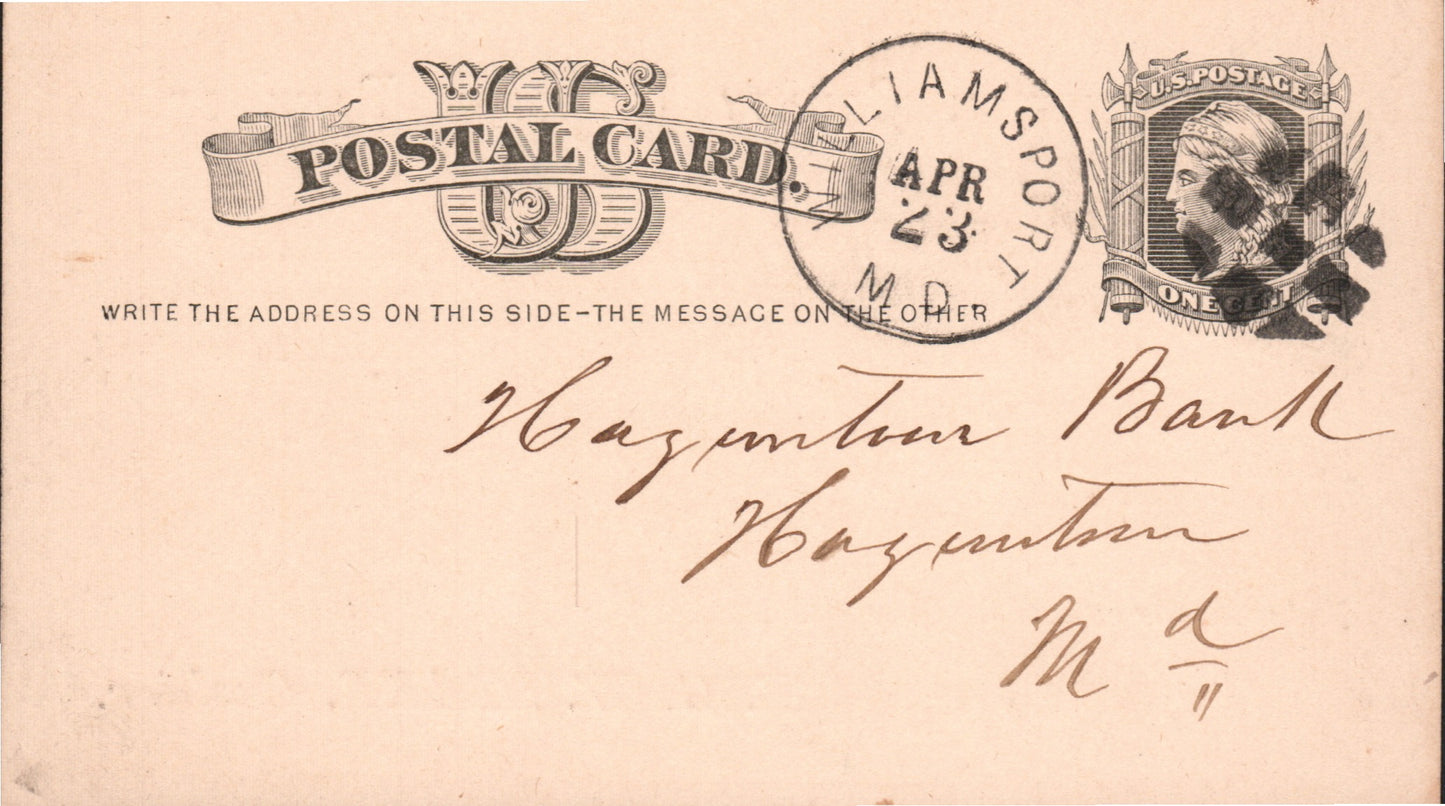 US
POSTAL CARD.
WILLIAMSPORT
APR
23
MD.
U.S. POSTAGE
ONE CENT
WRITE THE ADDRESS ON THIS SIDE–THE MESSAGE ON THE OTHER
Hagerstown Bank
Hagerstown
Md